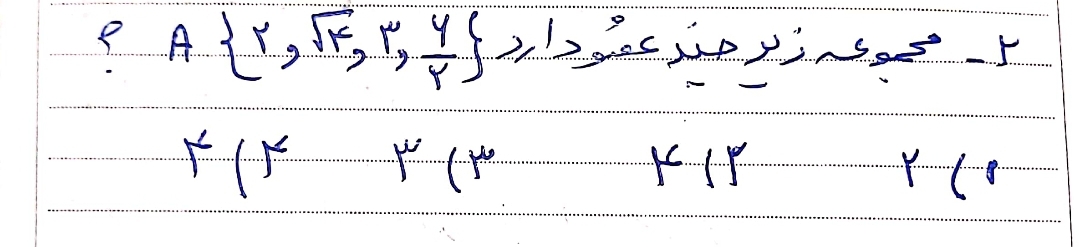 ۲- مجموعه زیر چند عضو دارد A {۲, √۴, ۳, ۶/۲} ؟
۱) ۲ ۲) ۴ ۳) ۳ ۴) ۴